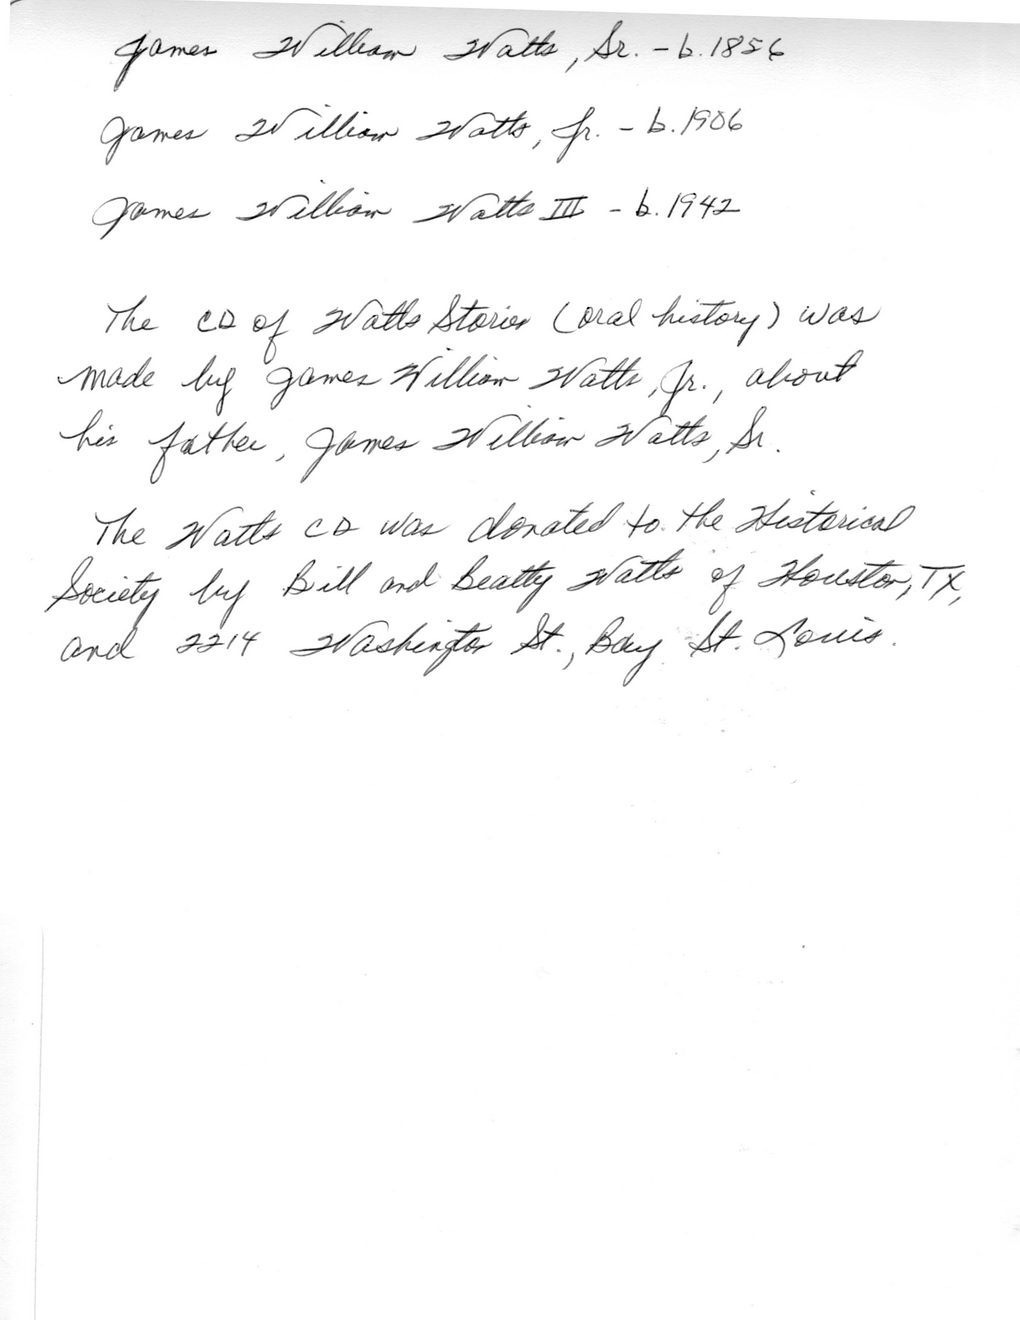 James William Watts, Sr. - b. 1856
James William Watts, Jr. - b. 1906
James William Watts III - b. 1942
The CD of Watts Stories (oral history) was
made by James William Watts, Jr., about
his father, James William Watts, Sr.
The Watts CD was donated to the Historical
Society by Bill and Beatty Watts of Houston, TX,
and 2214 Washington St., Bay St. Louis.